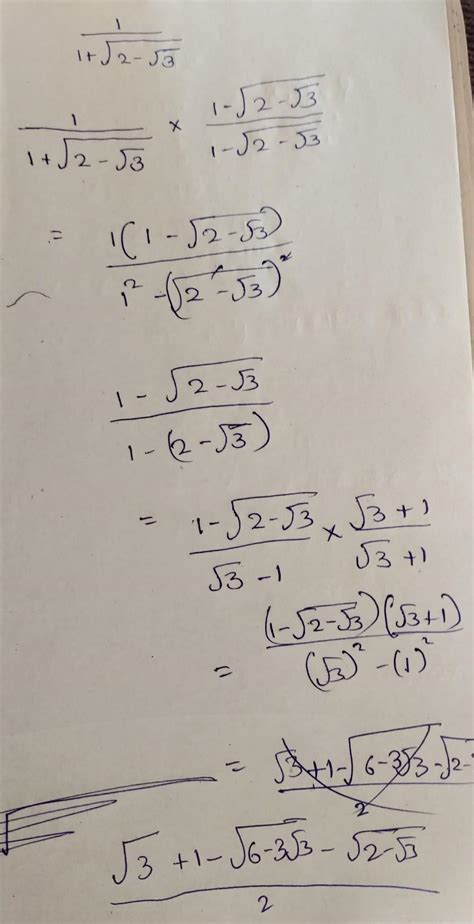 1/(1+√(2-√3))
1/(1+√(2-√3)) × (1-√(2-√3))/(1-√(2-√3))
= 1(1-√(2-√3))/(1²-(√(2-√3))²)
(1-√(2-√3))/(1-(2-√3))
= (1-√(2-√3))/(√3-1) × (√3+1)/(√3+1)
= (1-√(2-√3))(√3+1)/((√3)²-(1)²)
= (√3+1-√(6-3√3)-√(2-
)/2
(√3+1-√(6-3√3)-√(2-√3))/2